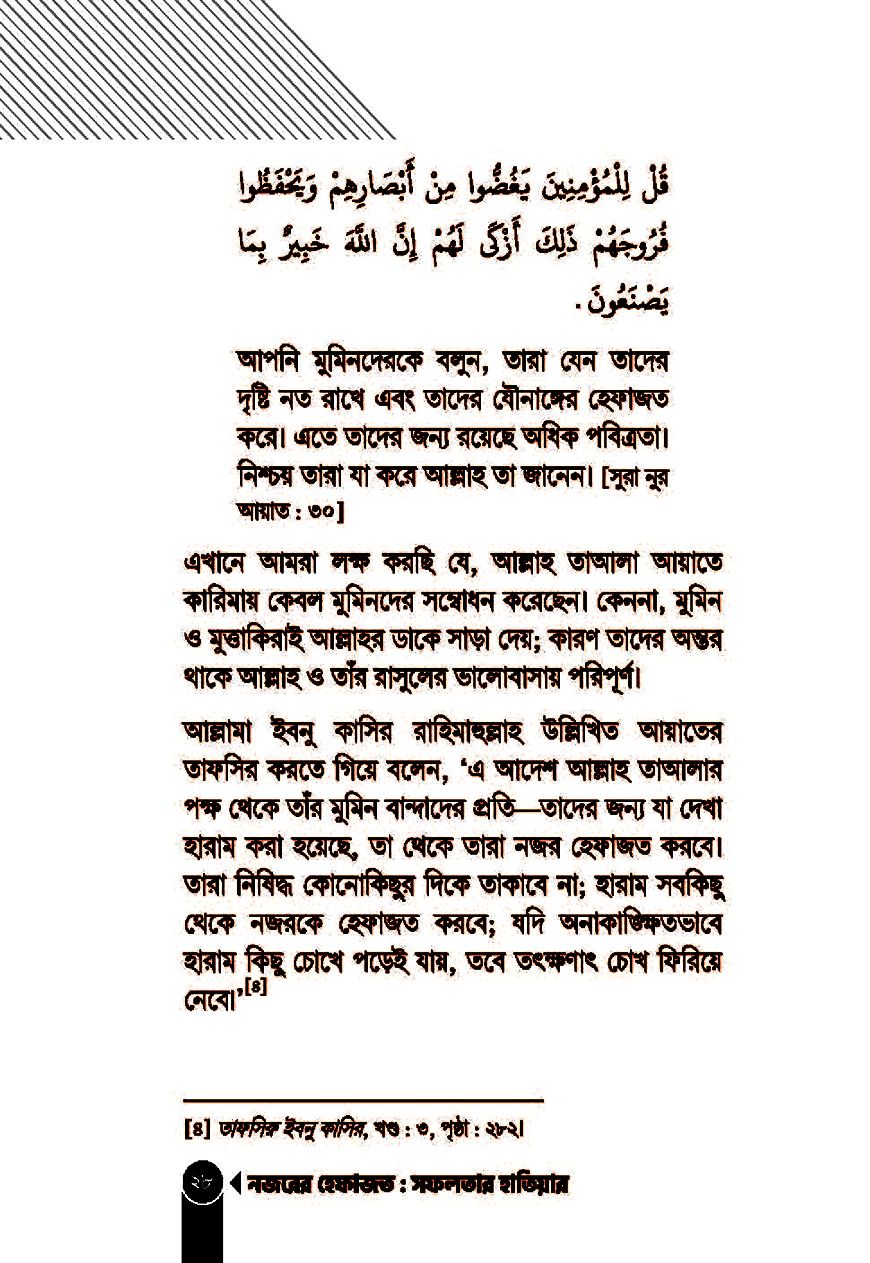 قُلْ لِلْمُؤْمِنِينَ يَغُضُّوا مِنْ أَبْصَارِهِمْ وَيَحْفَظُوا
فُرُوجَهُمْ ذَلِكَ أَزْكَى لَهُمْ إِنَّ اللَّهَ خَبِيرٌ بِمَا
يَصْنَعُونَ .
আপনি মুমিনদেরকে বলুন, তারা যেন তাদের
দৃষ্টি নত রাখে এবং তাদের যৌনাঙ্গের হেফাজত
করে। এতে তাদের জন্য রয়েছে অধিক পবিত্রতা।
নিশ্চয় তারা যা করে আল্লাহ তা জানেন। [সুরা নুর
আয়াত : ৩০]
এখানে আমরা লক্ষ করছি যে, আল্লাহ তাআলা আয়াতে
কারিমায় কেবল মুমিনদের সম্বোধন করেছেন। কেননা, মুমিন
ও মুত্তাকিরাই আল্লাহর ডাকে সাড়া দেয়; কারণ তাদের অন্তর
থাকে আল্লাহ ও তাঁর রাসুলের ভালোবাসায় পরিপূর্ণ।
আল্লামা ইবনু কাসির রাহিমাহুল্লাহ উল্লিখিত আয়াতের
তাফসির করতে গিয়ে বলেন, ‘এ আদেশ আল্লাহ তাআলার
পক্ষ থেকে তাঁর মুমিন বান্দাদের প্রতি—তাদের জন্য যা দেখা
হারাম করা হয়েছে, তা থেকে তারা নজর হেফাজত করবে।
তারা নিষিদ্ধ কোনোকিছুর দিকে তাকাবে না; হারাম সবকিছু
থেকে নজরকে হেফাজত করবে; যদি অনাকাঙ্ক্ষিতভাবে
হারাম কিছু চোখে পড়েই যায়, তবে তৎক্ষণাৎ চোখ ফিরিয়ে
নেবে।’[৪]
[৪] তাফসিরু ইবনু কাসির, খণ্ড : ৩, পৃষ্ঠা : ২৮২।
২৮ নজরের হেফাজত : সফলতার হাতিয়ার